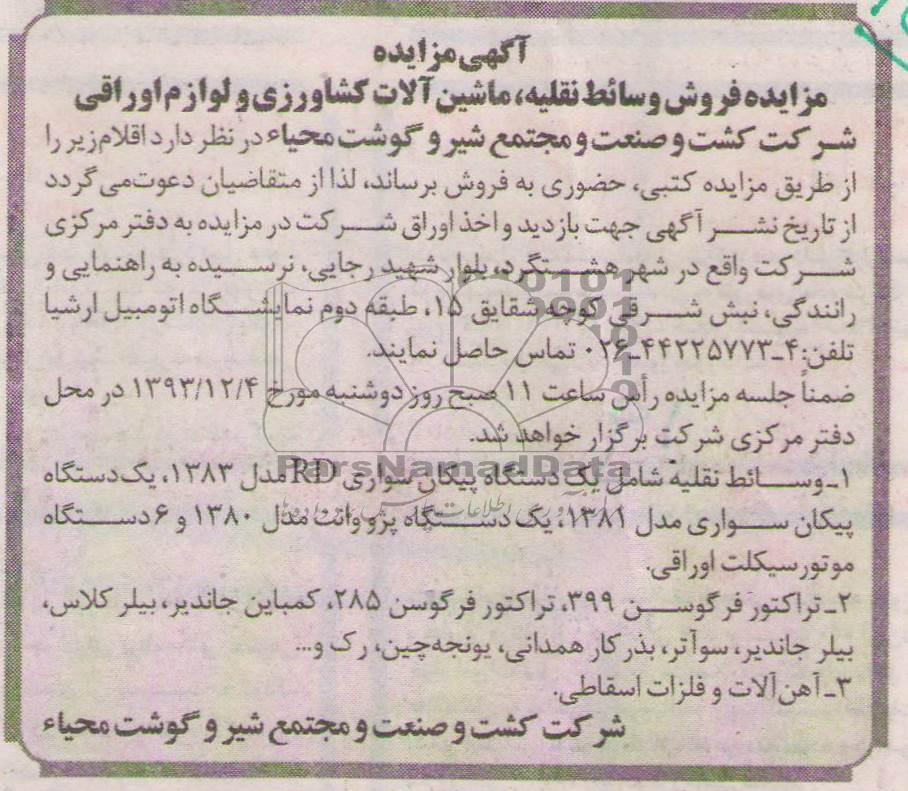 آگهی مزایده
مزایده فروش وسائط نقلیه، ماشین آلات کشاورزی و لوازم اوراقی
شرکت کشت و صنعت و مجتمع شیر و گوشت محیاء در نظر دارد اقلام زیر را
از طریق مزایده کتبی، حضوری به فروش برساند، لذا از متقاضیان دعوت می گردد
از تاریخ نشر آگهی جهت بازدید و اخذ اوراق شرکت در مزایده به دفتر مرکزی
شرکت واقع در شهر هشتگرد، بلوار شهید رجایی، نرسیده به راهنمایی و
رانندگی، نبش شرقی کوچه شقایق ۱۵، طبقه دوم نمایشگاه اتومبیل ارشیا
تلفن: ۴-۴۴۲۲۵۷۷۳-۰۲۶ تماس حاصل نمایند.
ضمناً جلسه مزایده رأس ساعت ۱۱ صبح روز دوشنبه مورخ ۱۳۹۳/۱۲/۴ در محل
دفتر مرکزی شرکت برگزار خواهد شد.
۱-وسائط نقلیه شامل یک دستگاه پیکان سواری RD مدل ۱۳۸۳، یک دستگاه
پیکان سواری مدل ۱۳۸۱، یک دستگاه پژو وانت مدل ۱۳۸۰ و ۶ دستگاه
موتورسیکلت اوراقی.
۲-تراکتور فرگوسن ۳۹۹، تراکتور فرگوسن ۲۸۵، کمباین جاندیر، بیلر کلاس،
بیلر جاندیر، سوآتر، بذر کار همدانی، یونجه چین، رک و...
۳-آهن آلات و فلزات اسقاطی.
شرکت کشت و صنعت و مجتمع شیر و گوشت محیاء
ParsNamadData